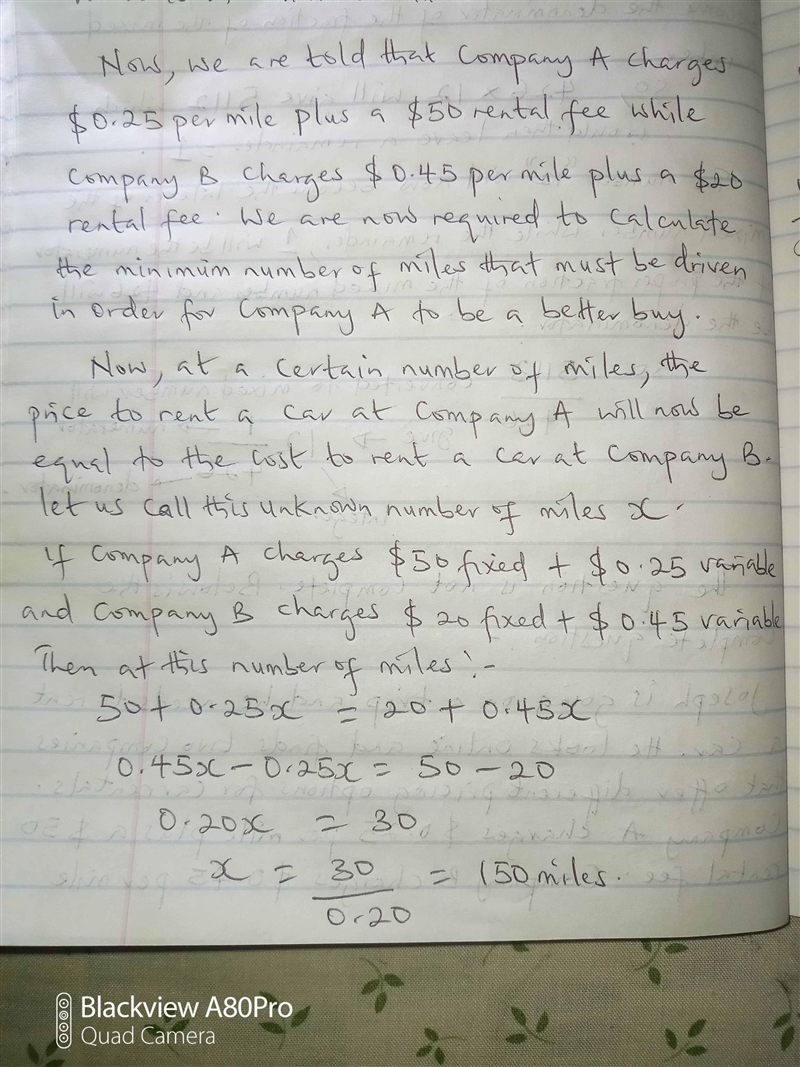 Now, we are told that Company A charges
$0.25 per mile plus a $50 rental fee while
Company B charges $0.45 per mile plus a $20
rental fee. We are now required to calculate
the minimum number of miles that must be driven
in order for Company A to be a better buy.
Now, at a certain number of miles, the
price to rent a car at Company A will now be
equal to the cost to rent a car at Company B.
let us call this unknown number of miles x.
If Company A charges $50 fixed + $0.25 variable
and Company B charges $20 fixed + $0.45 variable
Then at this number of miles:-
50 + 0.25x = 20 + 0.45x
0.45x - 0.25x = 50 - 20
0.20x = 30
x = 30/0.20 = 150 miles.
Blackview A80Pro
Quad Camera